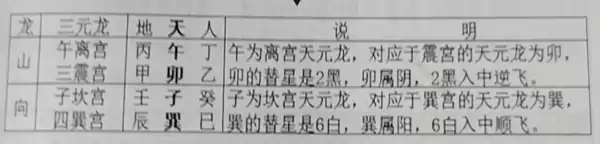 龙 三元龙 地 天 人 说 明
山 午离宫 丙 午 丁 午为离宫天元龙，对应于震宫的天元龙为卯，
三震宫 甲 卯 乙 卯的替星是2黑，卯属阴，2黑入中逆飞。
向 子坎宫 壬 子 癸 子为坎宫天元龙，对应于巽宫的天元龙为巽，
四巽宫 辰 巽 巳 巽的替星是6白，巽属阳，6白入中顺飞。